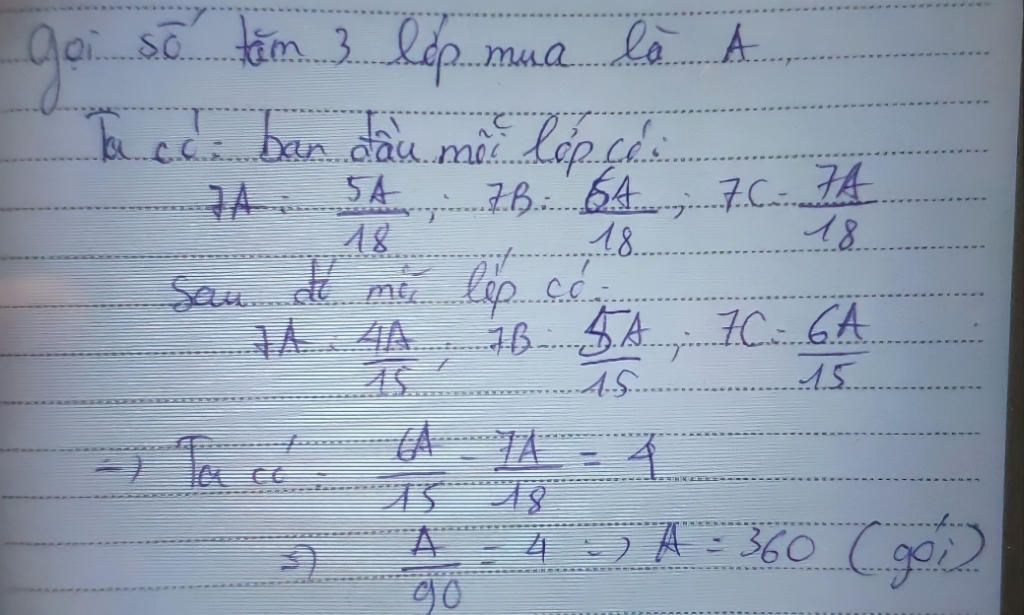 Gọi số tăm 3 lớp mua là A.
Ta có: ban đầu mỗi lớp có:
7A: 5A/18; 7B: 6A/18; 7C: 7A/18
Sau đó mỗi lớp có:
7A: 4A/15; 7B: 5A/15; 7C: 6A/15
=> Ta có: 6A/15 - 7A/18 = 4
=> A/90 = 4 => A = 360 (gói)